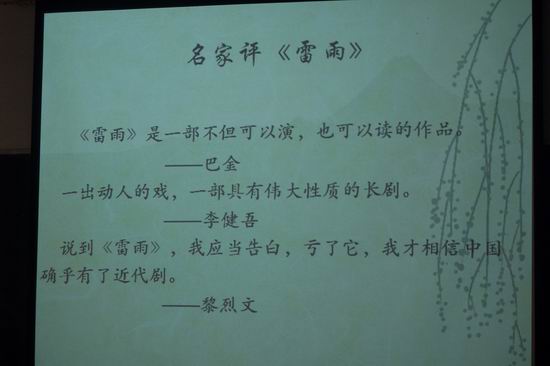 名家评《雷雨》
《雷雨》是一部不但可以演，也可以读的作品。
——巴金
一出动人的戏，一部具有伟大性质的长剧。
——李健吾
说到《雷雨》，我应当告白，亏了它，我才相信中国
确乎有了近代剧。
——黎烈文